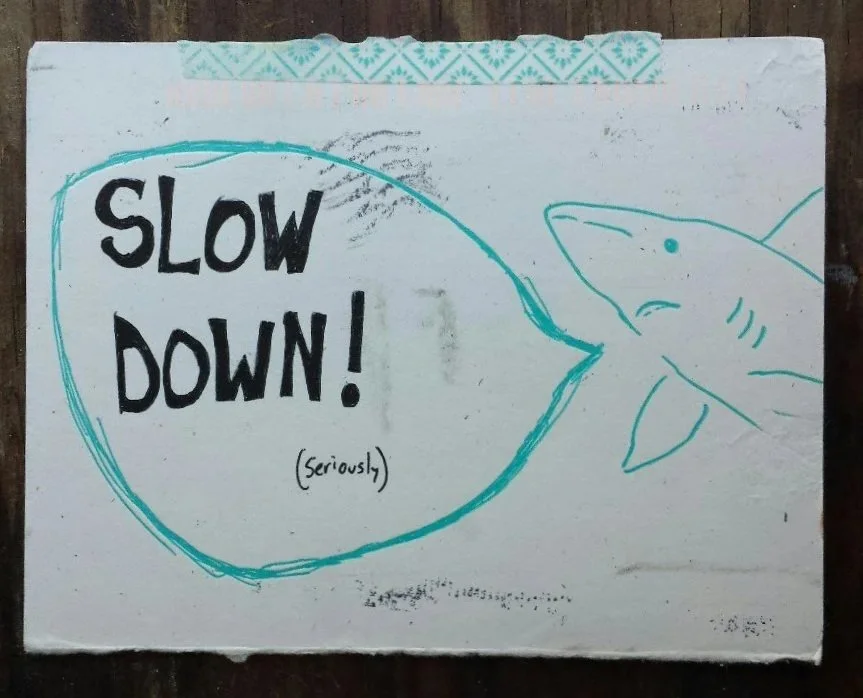 SLOW
DOWN!
(Seriously)